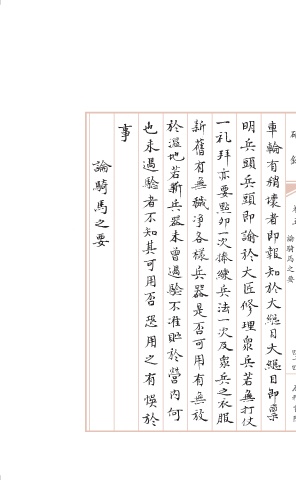 論騎馬之要
車輪有稍壞者即報知於大總目大總目即稟
明兵頭兵頭即諭於大匠修理眾兵若無打仗
一礼拜亦要點卯一次俾練兵法一次及眾兵之衣服
新舊有無穢净各樣兵器是否可用有無放
於濕地若新兵器未曾過驗不准貯於營內何
也未過驗者不知其可用否恐用之有悞於
事
論騎馬之要